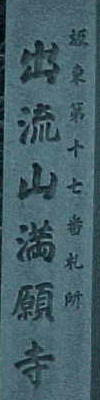 坂東第十七番札所
出流山満願寺